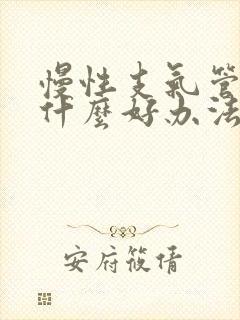 慢性支氣管
什麼好办法
安府筱倩